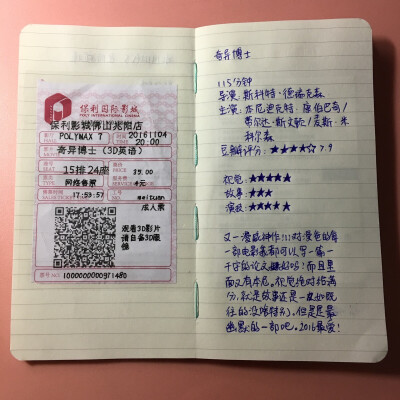 保利国际影城
POLY INTERNATIONAL CINEMA
保利影城佛山兆阳店
POLYMAX 7 20161104
20:00
奇异博士（3D英语）
15排24座 35.00
网络售票 4元
17:53:57 meituan
成人票
观看3D影片
请自备3D眼
镜
奇异博士
115分钟
导演：斯科特·德瑞克森
主演：本尼迪克特·康伯巴奇/
蒂尔达·斯文顿/麦斯·米
科尔森
豆瓣评分：★★★★☆ 7.9
视觉：★★★★★
故事：★★★
演技：★★★★★
又一漫威神作!!!对漫威的每
一部电影我都可以写一篇一
千字的论文
面又有本尼。视觉绝对给满
分，就是故事还是一如既
往的没啥特别。但是是最
幽默的一部吧。2016最爱!